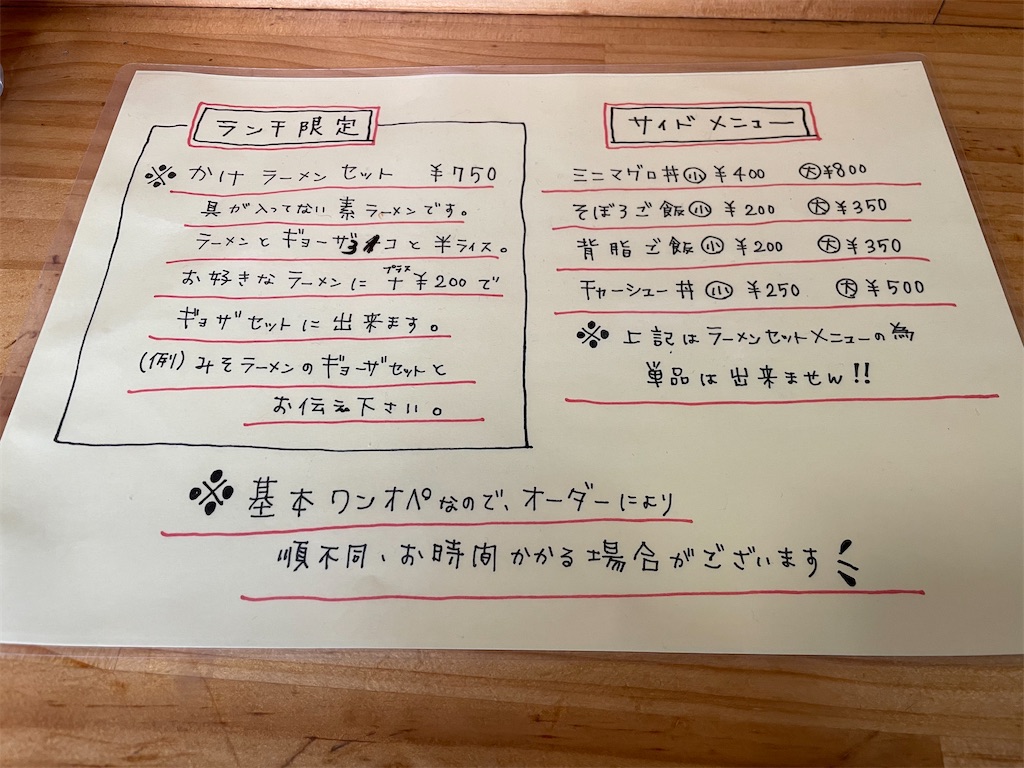 ランチ限定
※ かけ ラーメン セット ¥750
具が入ってない 素 ラーメンです。
ラーメンと ギョーザ 3コ と 半ライス。
お好きな ラーメンに +プラス ¥200で
ギョザセットに 出来ます。
(例) みそラーメンの ギョーザセットと
お伝え下さい。
サイドメニュー
ミニマグロ丼 小 ¥400 大 ¥800
そぼろご飯 小 ¥200 大 ¥350
背脂ご飯 小 ¥200 大 ¥350
チャーシュー丼 小 ¥250 大 ¥500
※ 上記は ラーメンセットメニューの為
単品は 出来ません!!
※ 基本ワンオペなので、オーダーにより
順不同、お時間かかる場合がございます